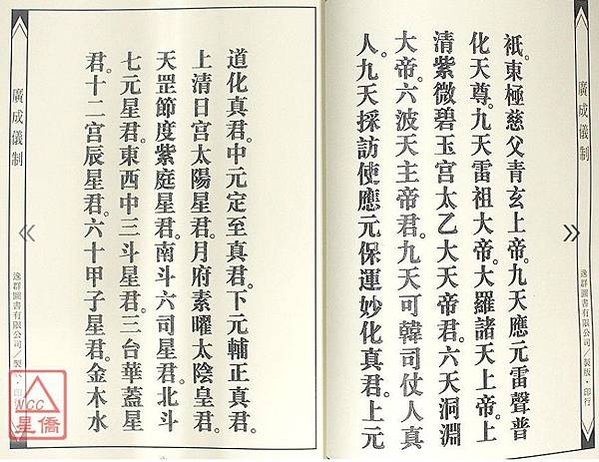 祇。東極慈父青玄上帝。九天應元雷聲普
化天尊。九天雷祖大帝。大羅諸天上帝。上
清紫微碧玉宮太乙大天帝君。六天洞淵
大帝。六波天主帝君。九天可韓司仗人真
人。九天採訪使應元保運妙化真君。上元
道化真君。中元定至真君。下元輔正真君。
上清日宮太陽星君。月府素曜太陰皇君。
天罡節度紫庭星君。南斗六司星君。北斗
七元星君。東西中三斗星君。三台華蓋星
君。十二宮辰星君。六十甲子星君。金木水
廣成儀制
逸群圖書有限公司/製版·印行
廣成儀制
逸群圖書有限公司/製版·印行
WCC
星僑